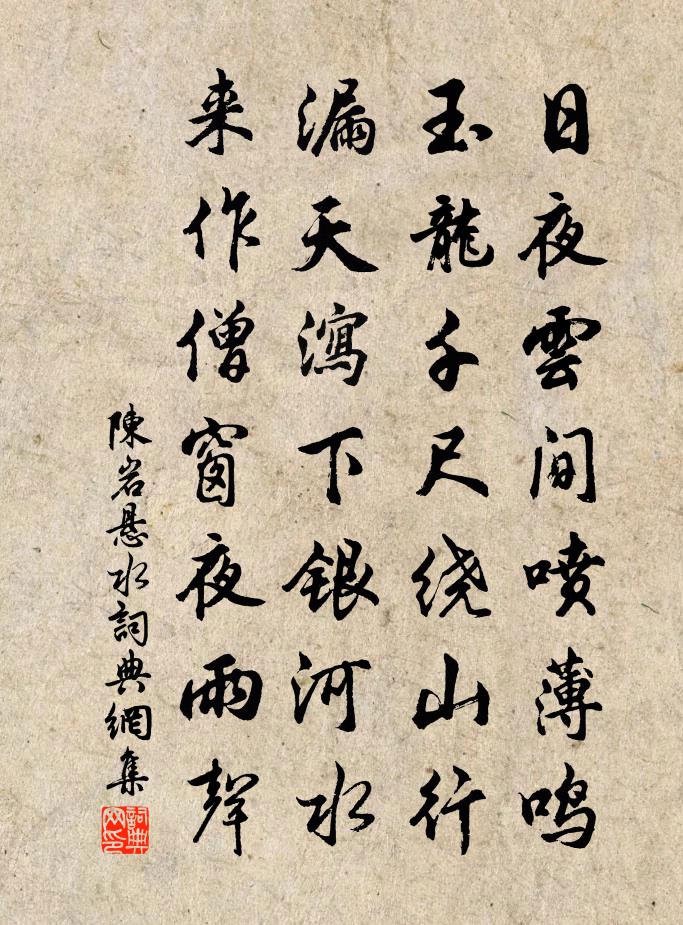 日夜雲间喷薄鸣
玉龍千尺绕山行
漏天瀉下银河水
来作僧窗夜雨聲
陳岩悬水詞典網集
詞典网印